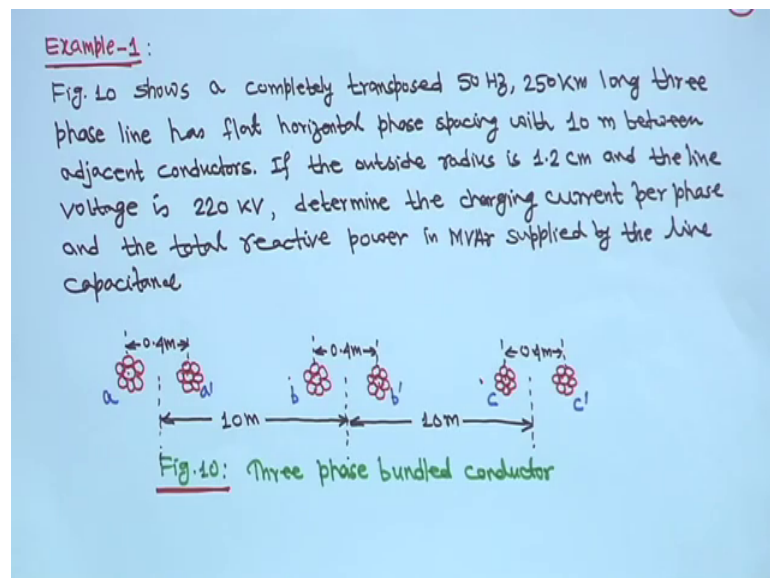 Example-1:
Fig. 10 shows a completely transposed 50 Hz, 250Km long three
phase line has flat horizontal phase spacing with 10 m between
adjacent conductors. If the outside radius is 1.2 cm and the line
voltage is 220 KV, determine the charging current per phase
and the total reactive power in MVAr supplied by the line
capacitance
0.4m 0.4m 0.4m
a a' b b' c c'
10m 10m
Fig.10: Three phase bundled conductor